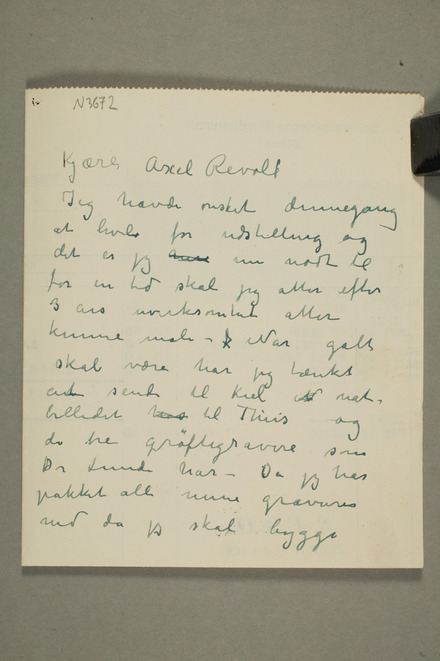 N3672
Kjære Axel Revold
Jeg havde ønsket dennegang
at hvile for udstilling og
det er jeg nu nødt til
for en tid skal jeg atter efter
3 års uvirksomhet atter
kunne male – Når galt
skal være har jeg tænkt
at sende til Kiel et nat-
billedet til Thiis og
de tre grøftegravere som
Dr Lunde har – Da jeg har
pakket alle mine gravures
ned da jeg skal bygge